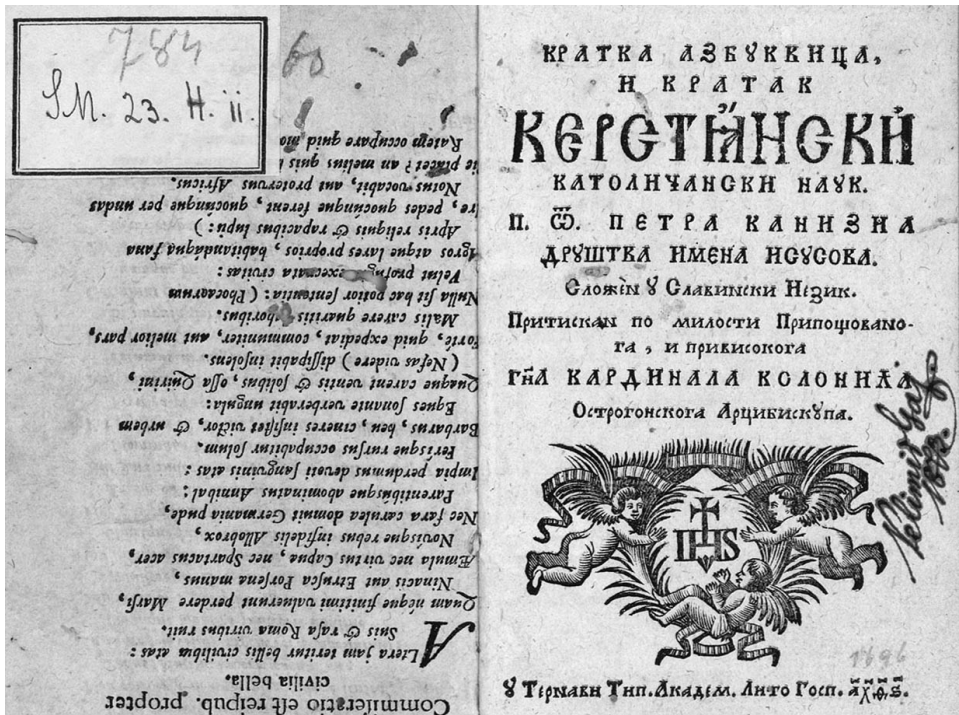 784
SM. 23. H. ii.
60
Commiseratio est reipub. propter
civilia bella.
ALtera jam teritur bellis civilibus ætas:
Suis & ipsa Roma viribus ruit.
Quam néque finitimi valuerunt perdere Marsi,
Minacis aut Etrusca Porsenæ manus,
Æmula nec virtus Capuæ, nec Spartacus acer,
Novisque rebus infidelis Allobrox,
Nec fera cærulea domuit Germania pube,
Parentibusque abominatus Annibal:
Impia perdemus devoti sanguinis ætas:
Ferisque rursus occupabitur solum.
Barbarus, heu, cineres insistet victor, & urbem
Eques sonante verberabit ungula:
Quæque carent ventis & solibus, ossa Quirini,
(Nefas videre) dissipabit insolens.
Fortè, quid expediat, communiter, aut melior pars,
Malis carere quæritis laboribus.
Nulla sit hac potior sententia: (Phocæorum
Velut profugit execrata civitas:
Agros atque lares proprios, habitandaque fana
Apris reliquit & rapacibus lupis:)
Ire, pedes quocúnque ferent, quocúnque per undas
Notus vocabit, aut protervus Africus.
Sic placet? an melius quis
Ratem occupare quid mo
КРАТКА АЗБУКВИЦА,
И КРАТАК
КЕРСТЍѦНСКЍ
КАТОЛИЧАНСКИ НАУК.
П. Ѿ. ПЕТРА КАНИЗИА
ДРУШТВА ИМЕНА ИСУСОВА.
Сложен у Славински Иезик.
Притискан по милости Припошовано-
га, и привисокога
ГНА КАРДИНАЛА КОЛОНИЋА
Острогонскога Арцибискупа.
IHS
1696
У Тернави Тип. Академ. Лито Госп. ҂АХЧЅ.